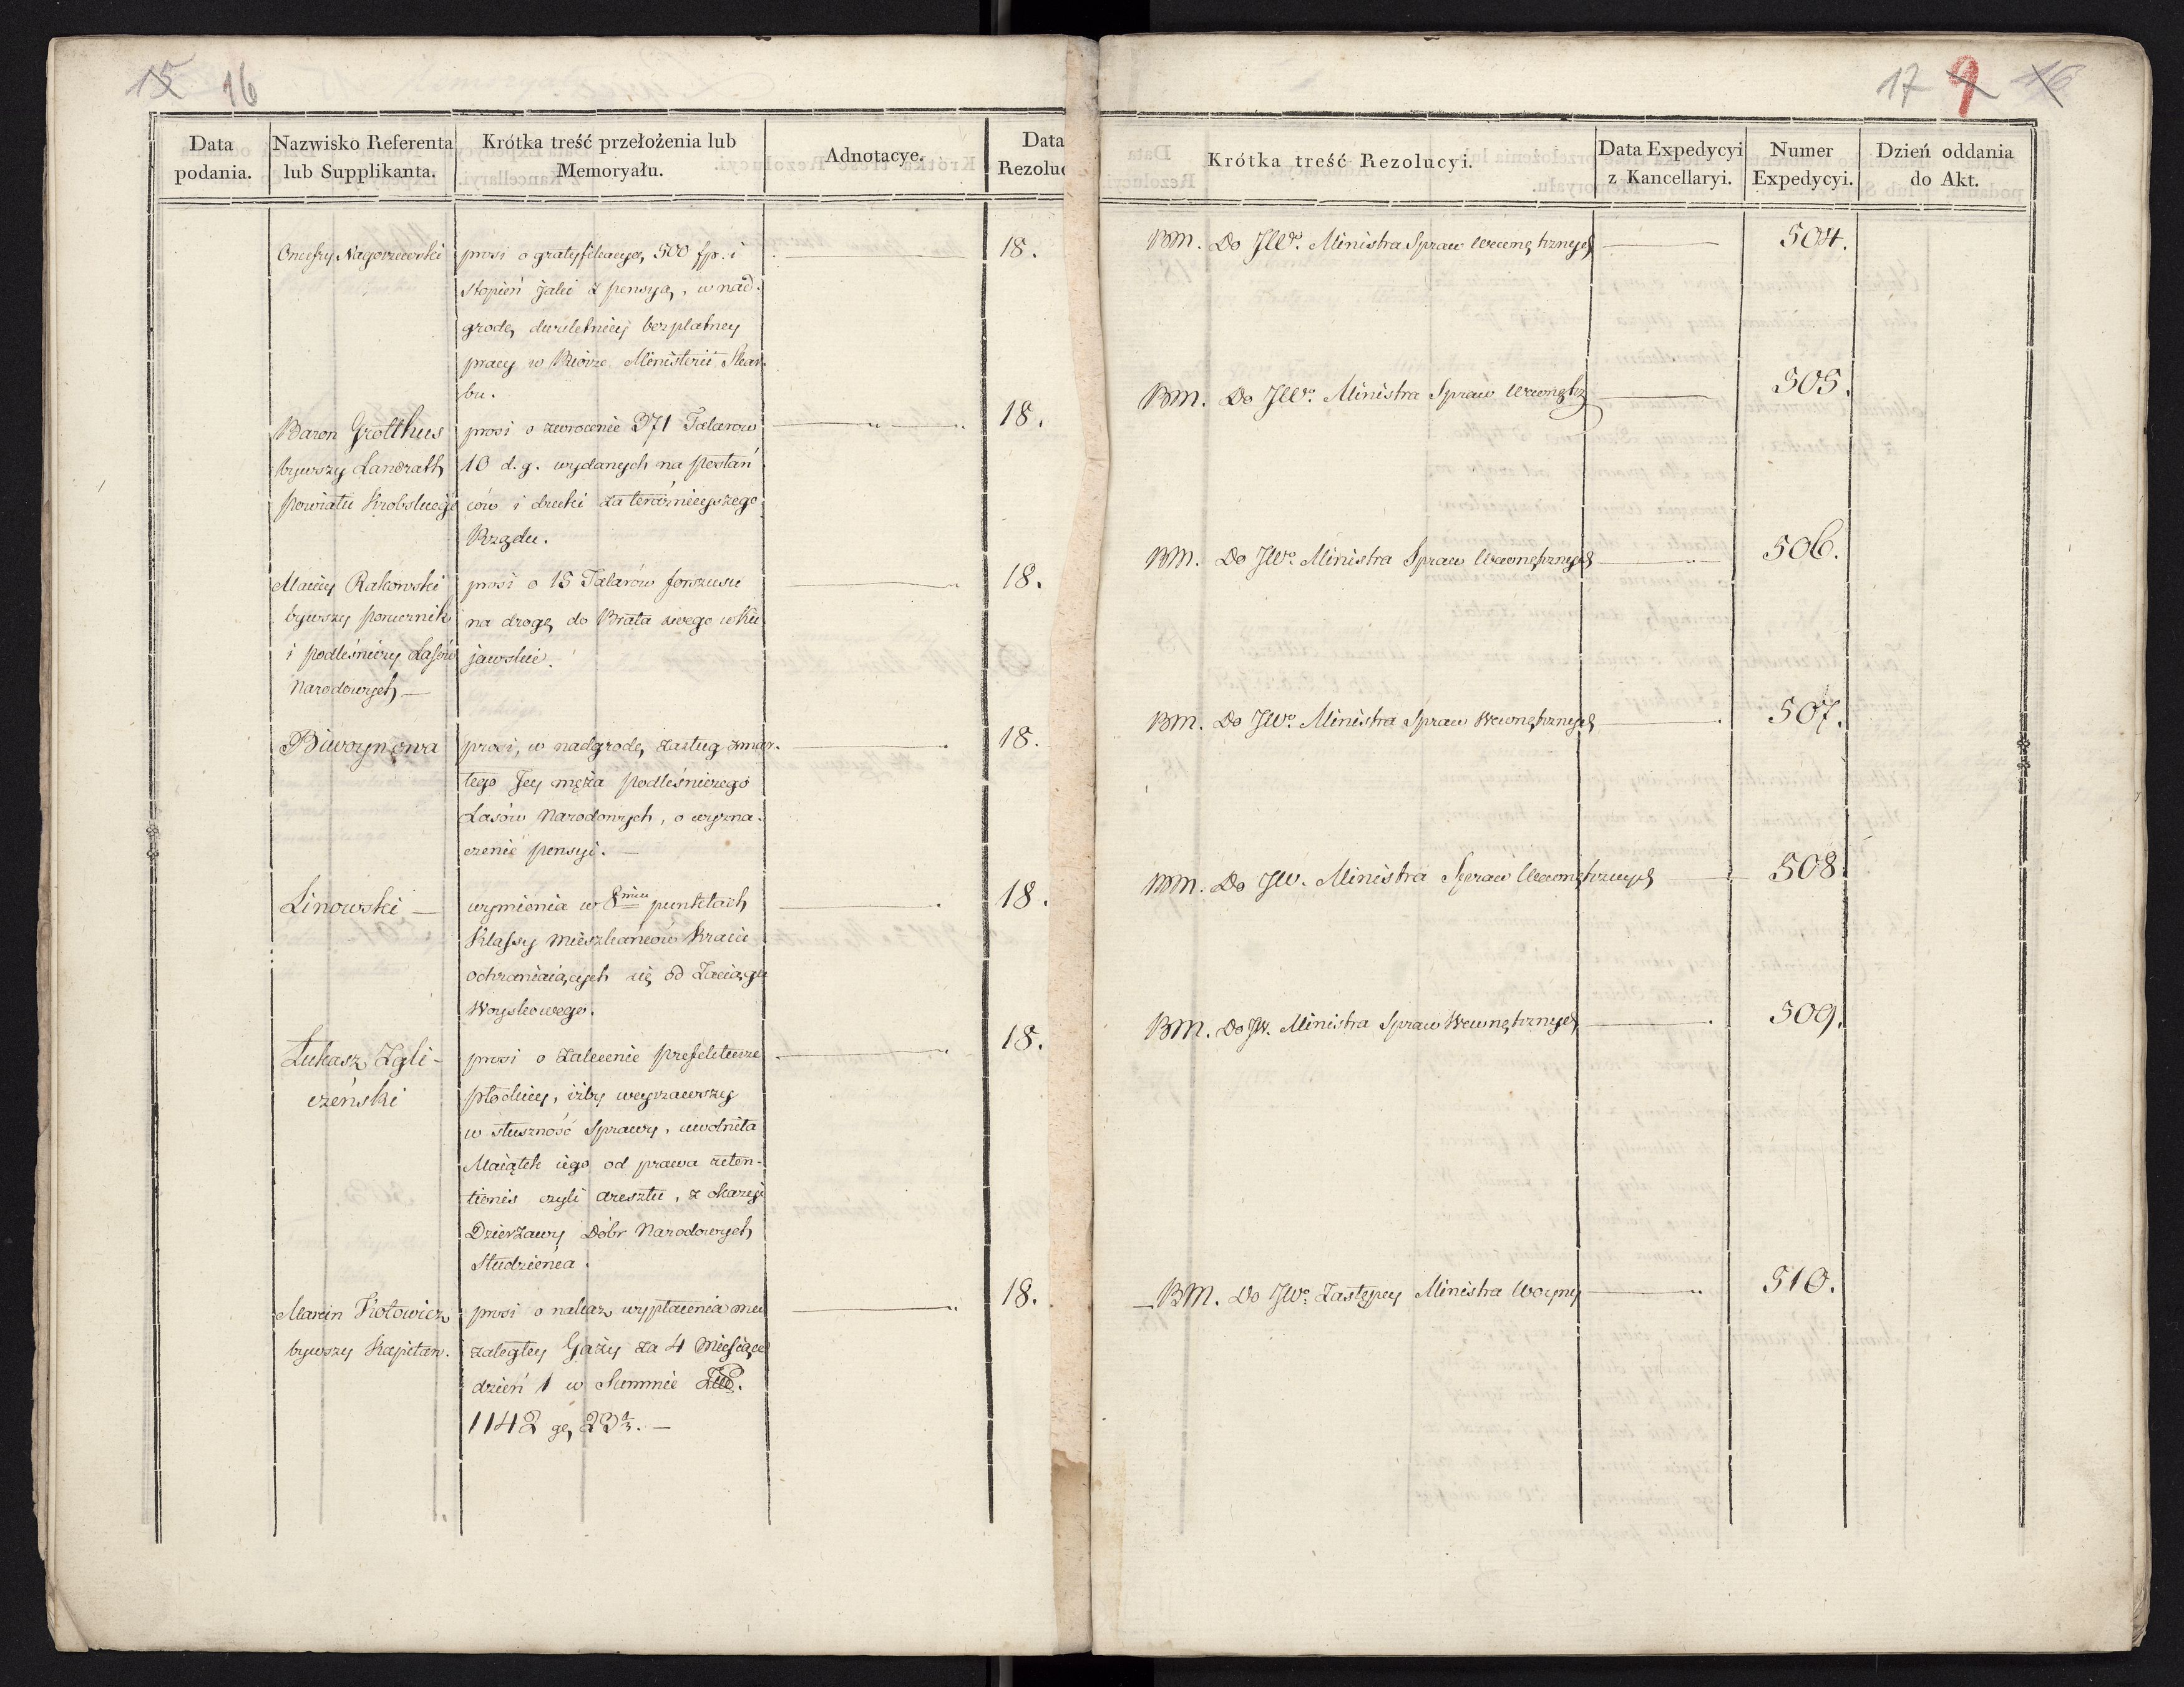 15 16
Data podania.
Nazwisko Referenta lub Supplikanta.
Krótka treść przełożenia lub Memoryału.
Adnotacye.
Data Rezoluc
Onufry Nagorzewski
prosi o gratyfikacyą 500 fp. i
stopień jaki z pensyą, w nad-
grodę dwuletniey bezpłatney
pracy w Biórze Ministerii Skar-
bu.
18.
Baron Grotthus
bywszy Landrath
powiatu Krobskiego
prosi o zwrocenie 371 Talarow
10 d. g. wydanych na posłań
ców i druki za teraźnieyszego
Rządu.
18.
Maciey Rakowski
bywszy porucznik
i podleśniczy Lasów
Narodowych —
prosi o 15 Talarów forszusu
na drogę do Brata swego w Ku
jawskie.
18.
Biwoynowa
prosi, w nadgrodę zasług zmar-
łego Jey męża podleśniczego
Lasów Narodowych, o wyzna-
czenie pensyi. —
18.
Linowski —
wymienia w 8miu punktach
Klassy Mieszkańców Kraiu
ochraniaiących się od Zaciągu
Woyskowego.
18.
Łukasz Zgli-
czeński
prosi o Zalecenie prefekturze
płockiey, iżby weyrzawszy
w słuszność Sprawy, uwolniła
Maiątek iego od prawa reten-
tionis czyli aresztu, z okazyi
Dzierżawy Dóbr Narodowych
Studzieńca.
18.
Marcin Kołowicz
bywszy Kapitan.
prosi o nakaz wypłacenia mu
zaległey Gaży za 4 Miesiące
dzień 1 w Summie
1142 gr 23⅓. —
18.
17 9 16
Krótka treść Rezolucyi.
Data Expedycyi z Kancellaryi.
Numer Expedycyi.
Dzień oddania do Akt.
BM. Do JWo. Ministra Spraw Wewnętrznych 504.
BM. Do JWo. Ministra Spraw Wewnętrz 505.
BM. Do JWo Ministra Spraw Wewnętrznych 506.
BM. Do JWo. Ministra Spraw Wewnętrznych 507.
BM. Do JW. Ministra Spraw Wewnętrznych 508.
BM. Do JW. Ministra Spraw Wewnętrznych 509.
BM. Do JWo. Zastępcy Ministra Woyny 510.